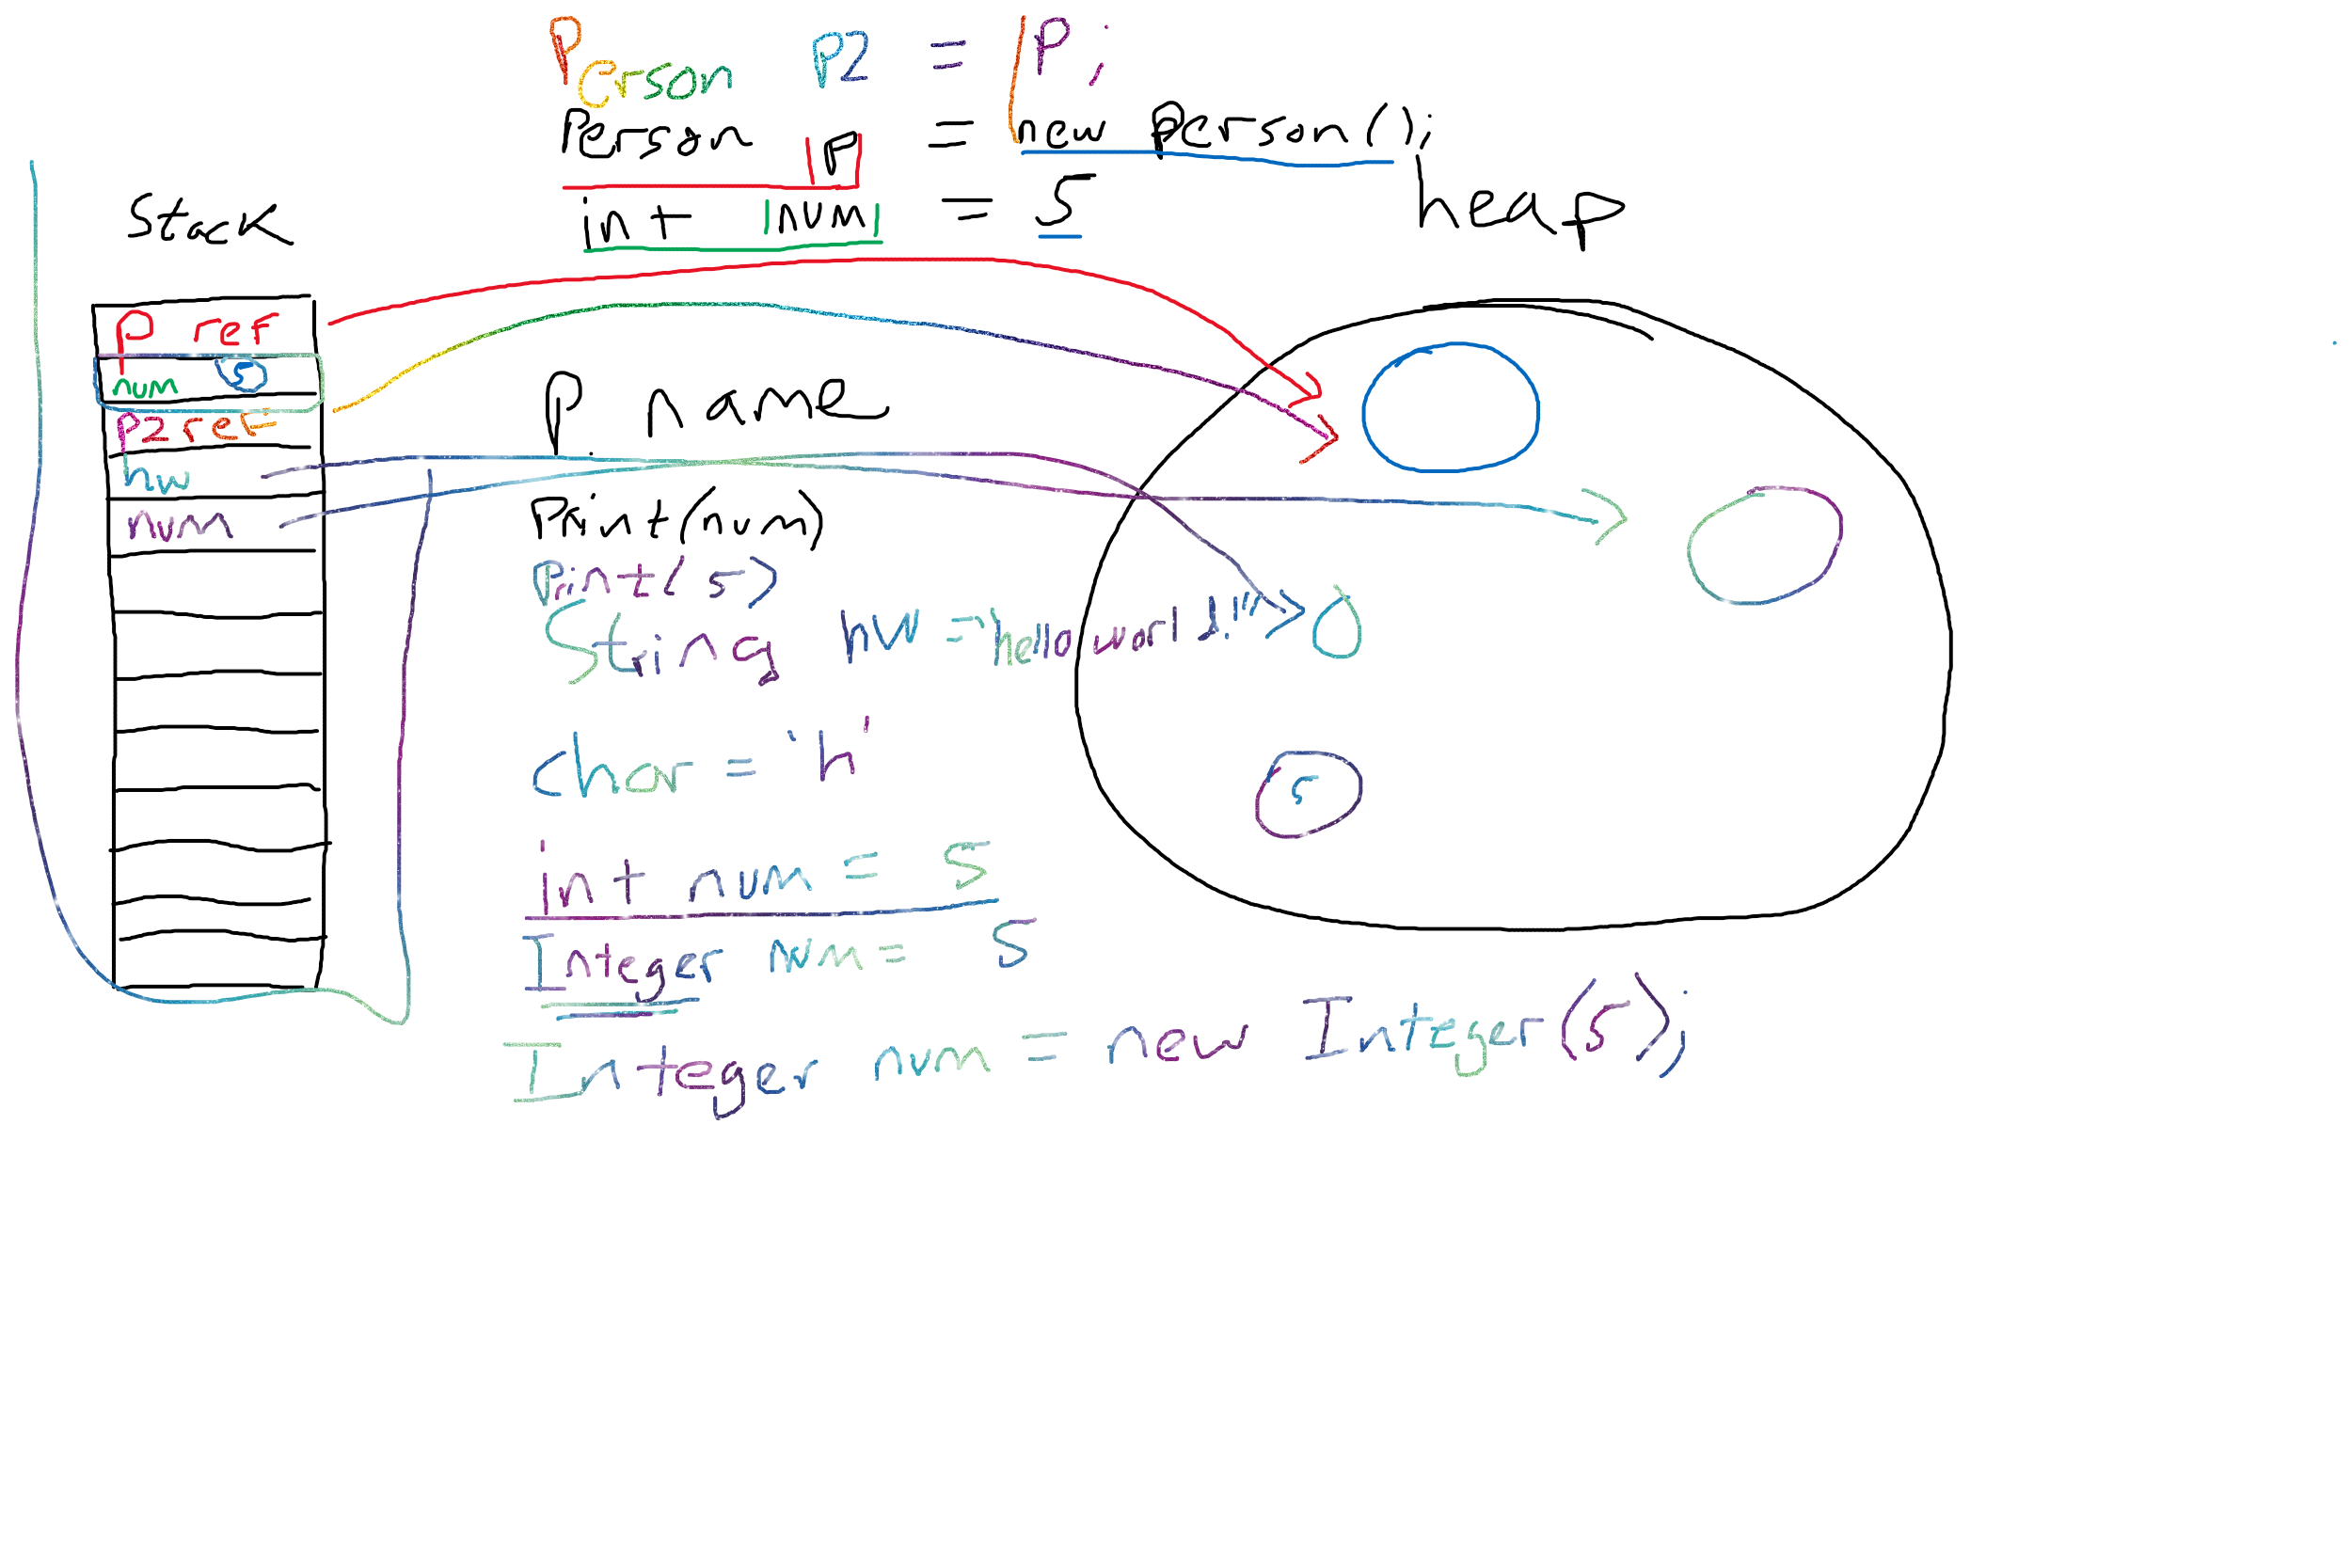 Person P2 = P;
Person P = new Person();
int num = 5
Stack
heap
P ref
num 5
P2 ref
hw
num
P name
Print(num)
Print(5)
String hw = "hello world!"
char = 'h'
5
int num = 5
Integer num = 5
Integer num = new Integer(5);